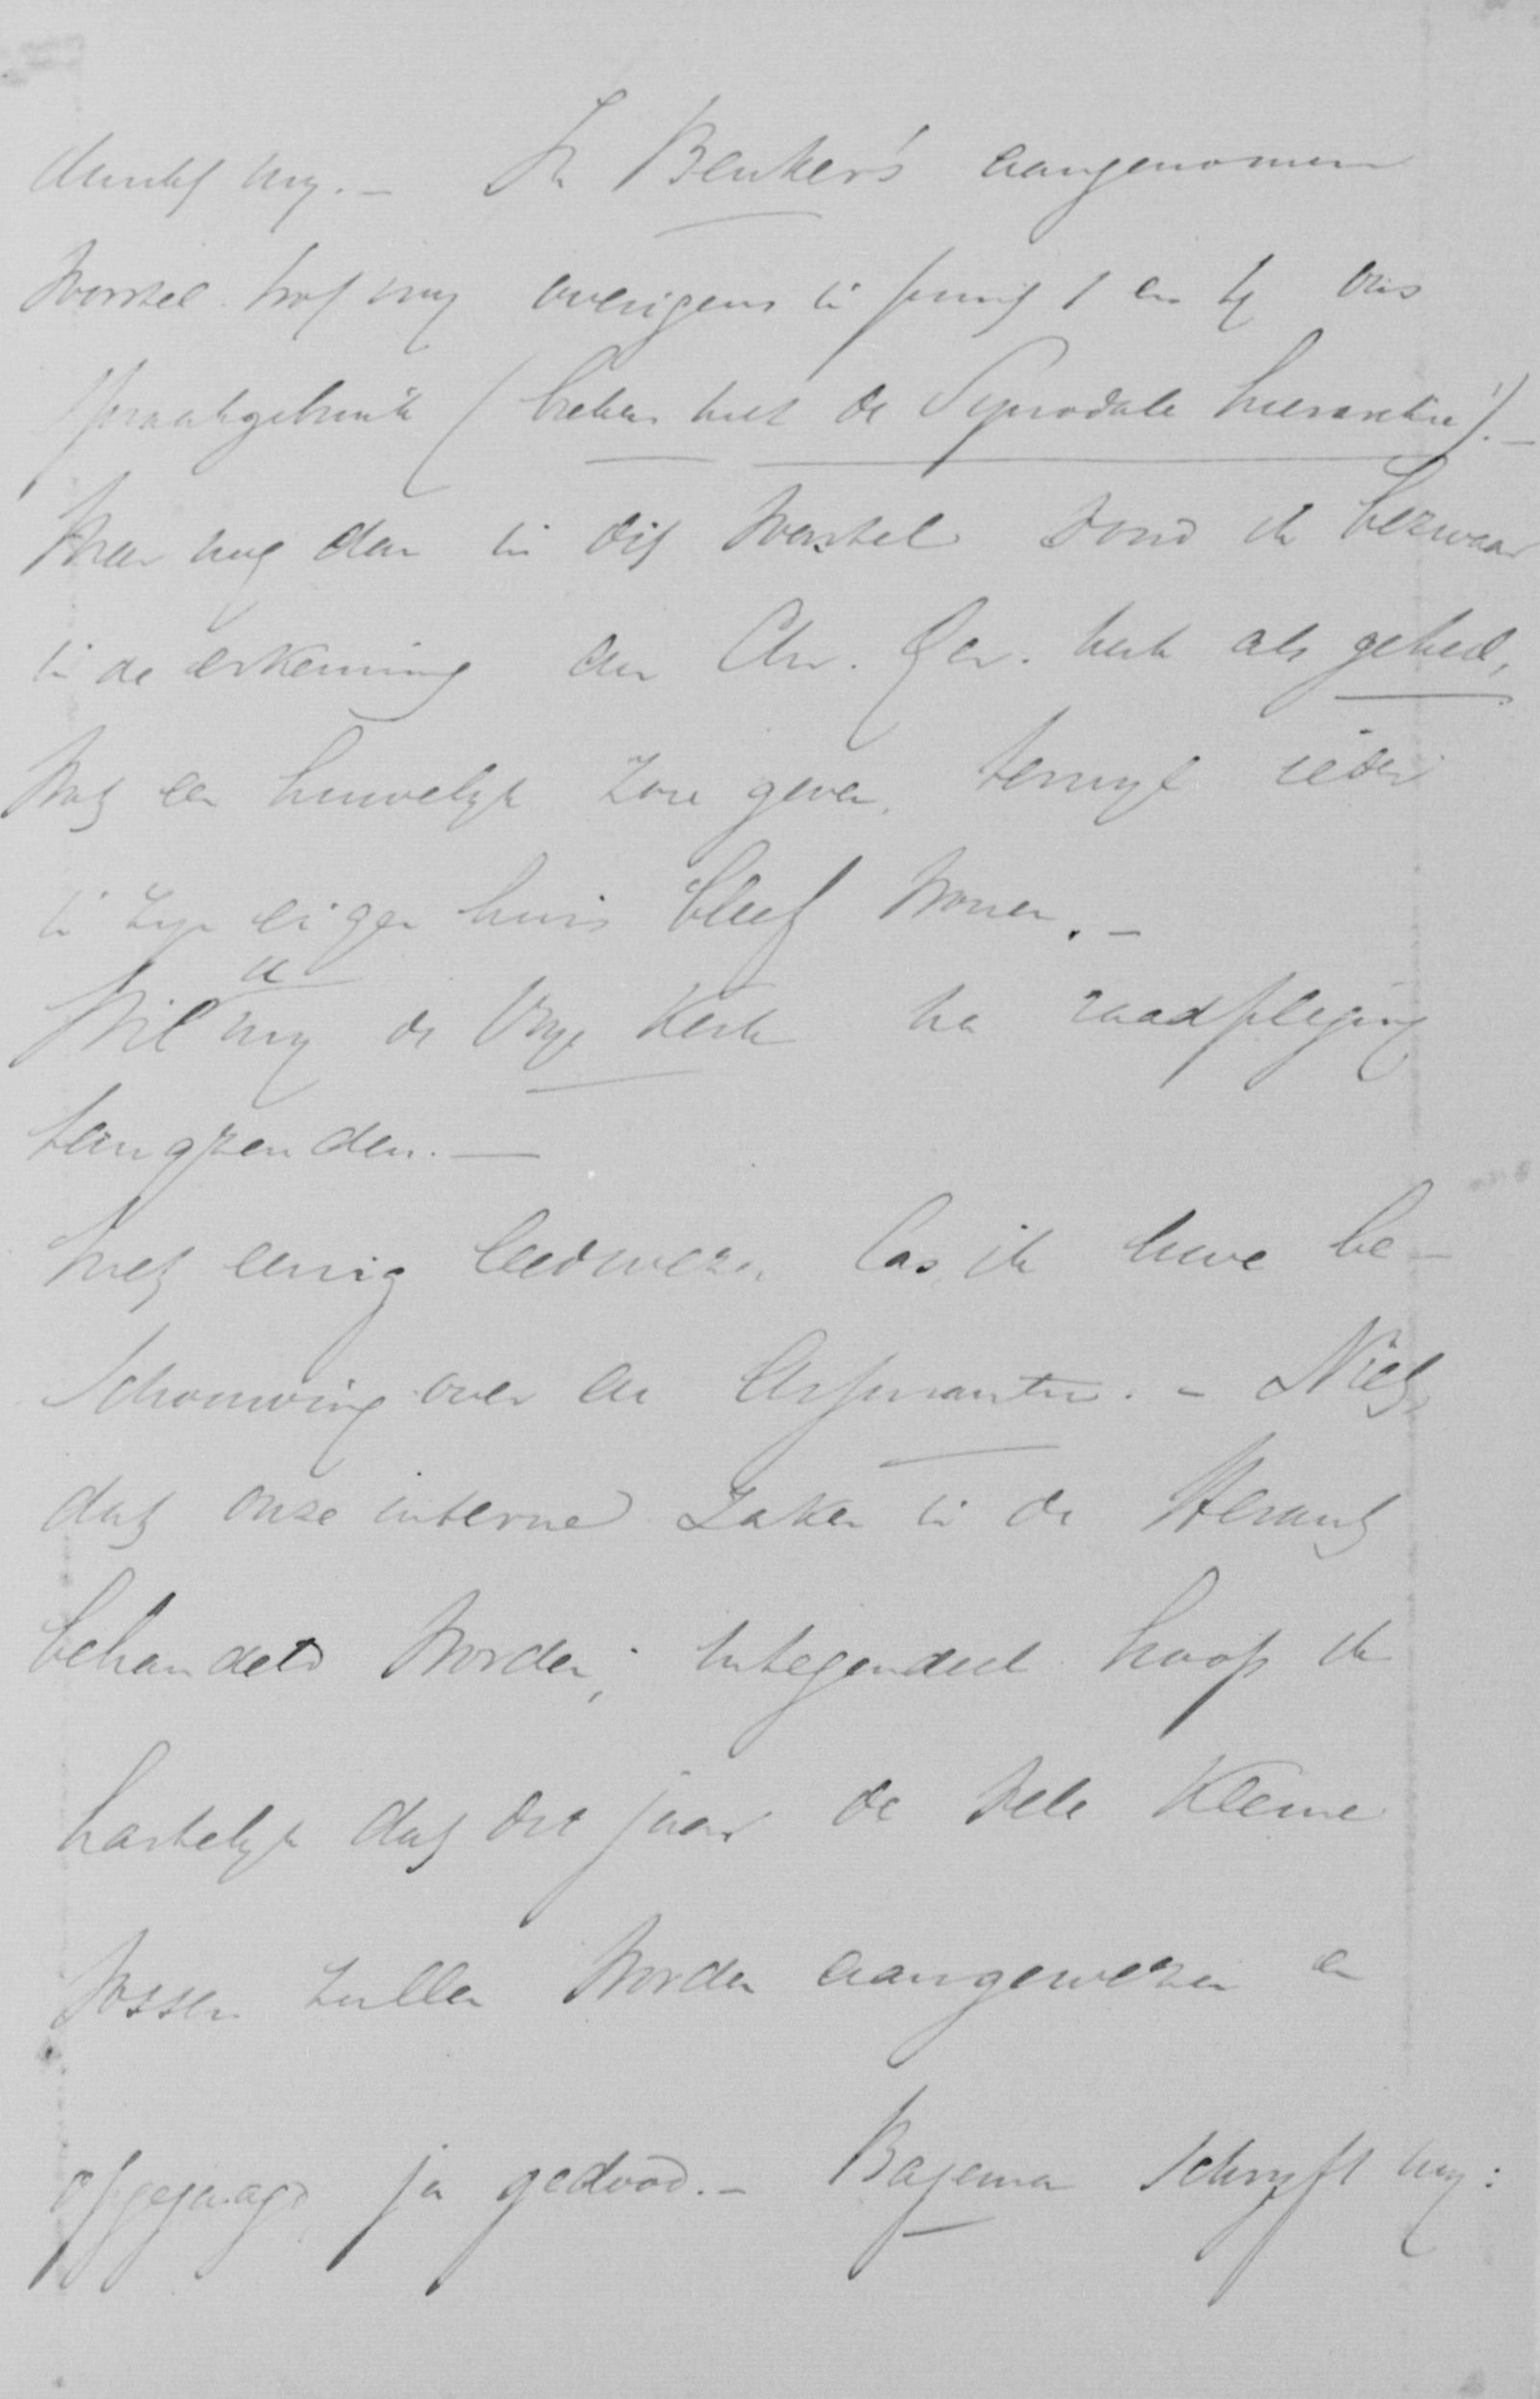 mij. – In Beuker's aangenomen
voorstel trof mij overigens in punt 1 en 4 ons
spraakgebruik (breken met de Synodale hierarchie!). –
Maar nog dan in dit voorstel vond ik bezwaar
in de erkenning der Chr. Ger. kerk als geheel,
wat een huwelijk zou geven, terwijl ieder
in zijn eigen huis bleef wonen. –
Wil u mij de Vrije Kerk na raadpleging
terugzenden. –
Met eenig leedwezen las ik uwe be-
schouwing over de Aspirantie. – Niet,
dat onze interne zaken in de Heraut
behandeld worden; integendeel hoop ik
hartelijk dat dit jaar de vele kleine
vossen zullen worden aangewezen en
opgejaagd, ja gedood. – Bajema schrijft mij: